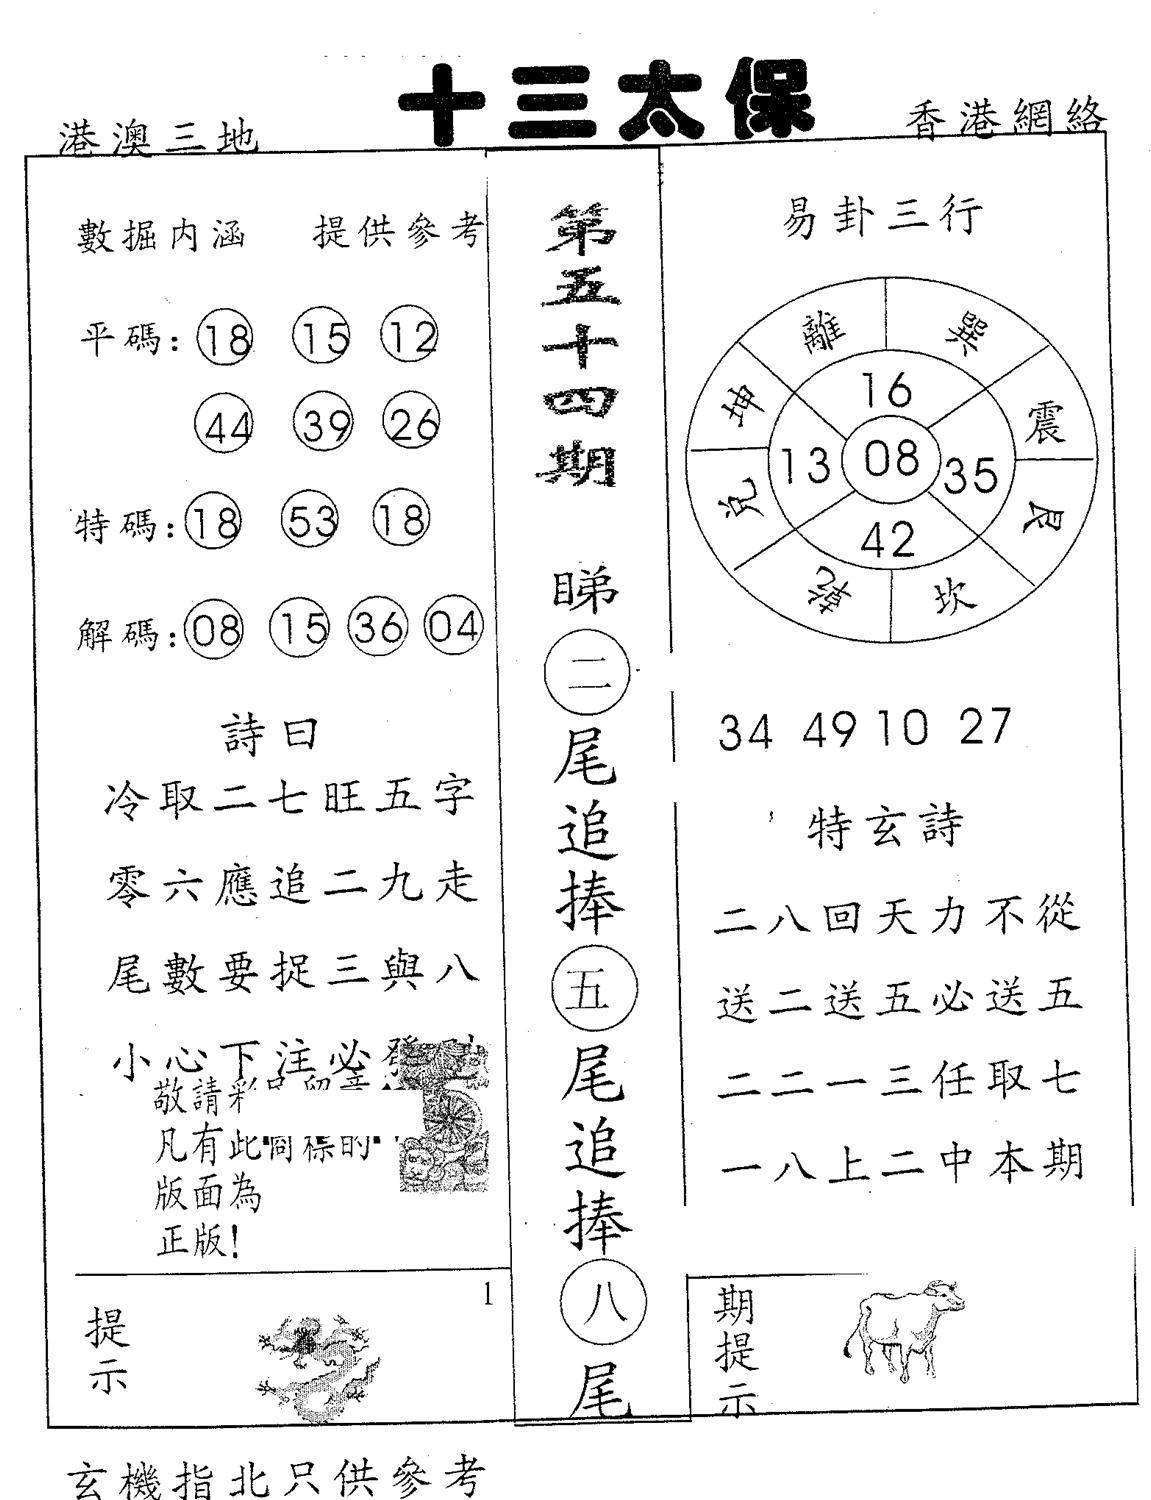 十三太保
港澳三地
香港網絡
數掘内涵 提供參考
平碼: 18 15 12
44 39 26
特碼: 18 53 18
解碼: 08 15 36 04
詩曰
冷取二七旺五字
零六應追二九走
尾數要捉三與八
小心下注必發
敬請彩民留意
凡有此圖標的
版面為
正版!
提示
1
第五十四期
睇二尾追捧五尾追捧八尾
易卦三行
離 巽 震 艮 坎 乾 兌 坤
16
13 08 35
42
34 49 10 27
特玄詩
二八回天力不從
送二送五必送五
二二一三任取七
一八上二中本期
期提示
玄機指北只供參考